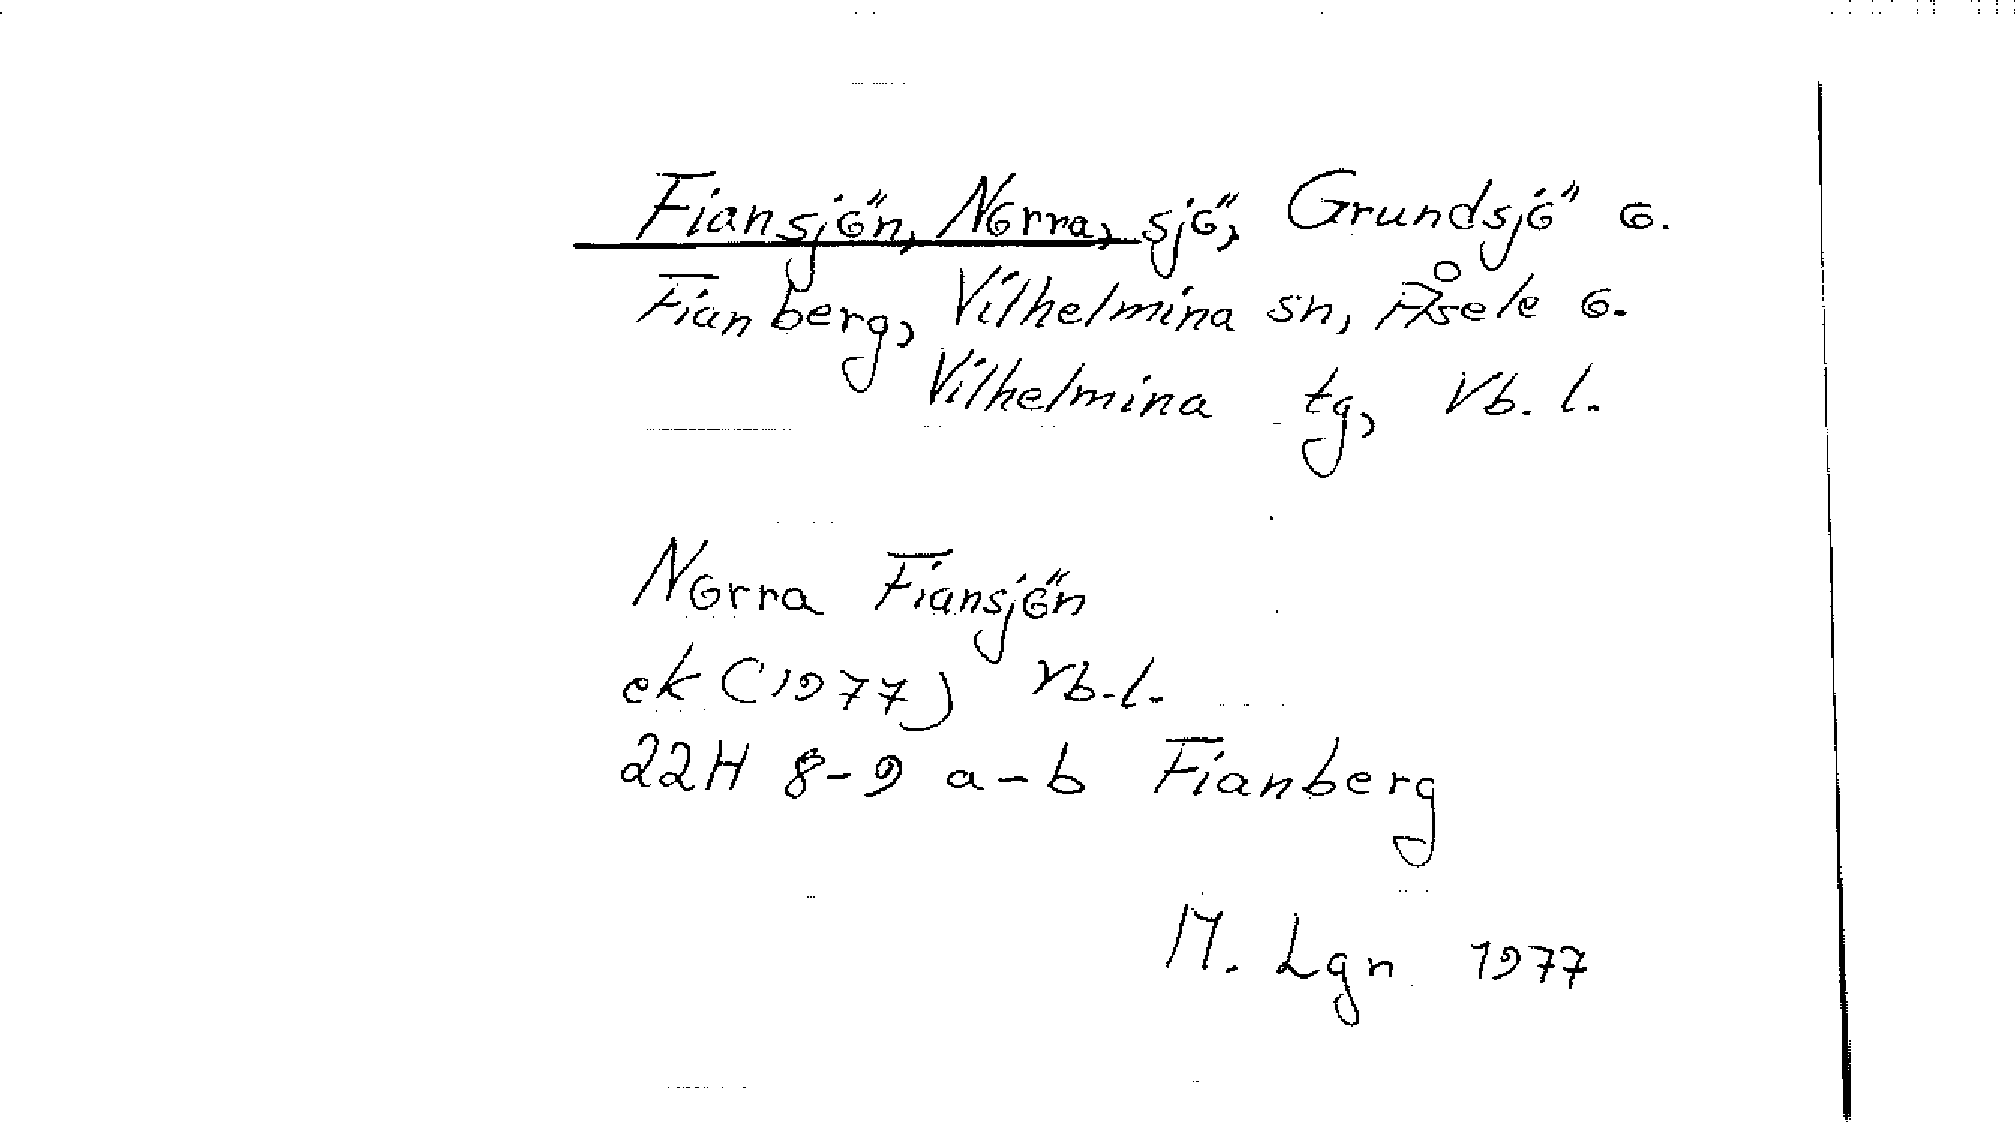 Fiansjön, Norra, sjö, Grundsjö o.
Fianberg, Vilhelmina sn, Åsele o.
Vilhelmina tg, Vb. l.
Norra Fiansjön
ek (1977) Vb.l.
22H 8-9 a-b Fianberg
M. Lgn 1977